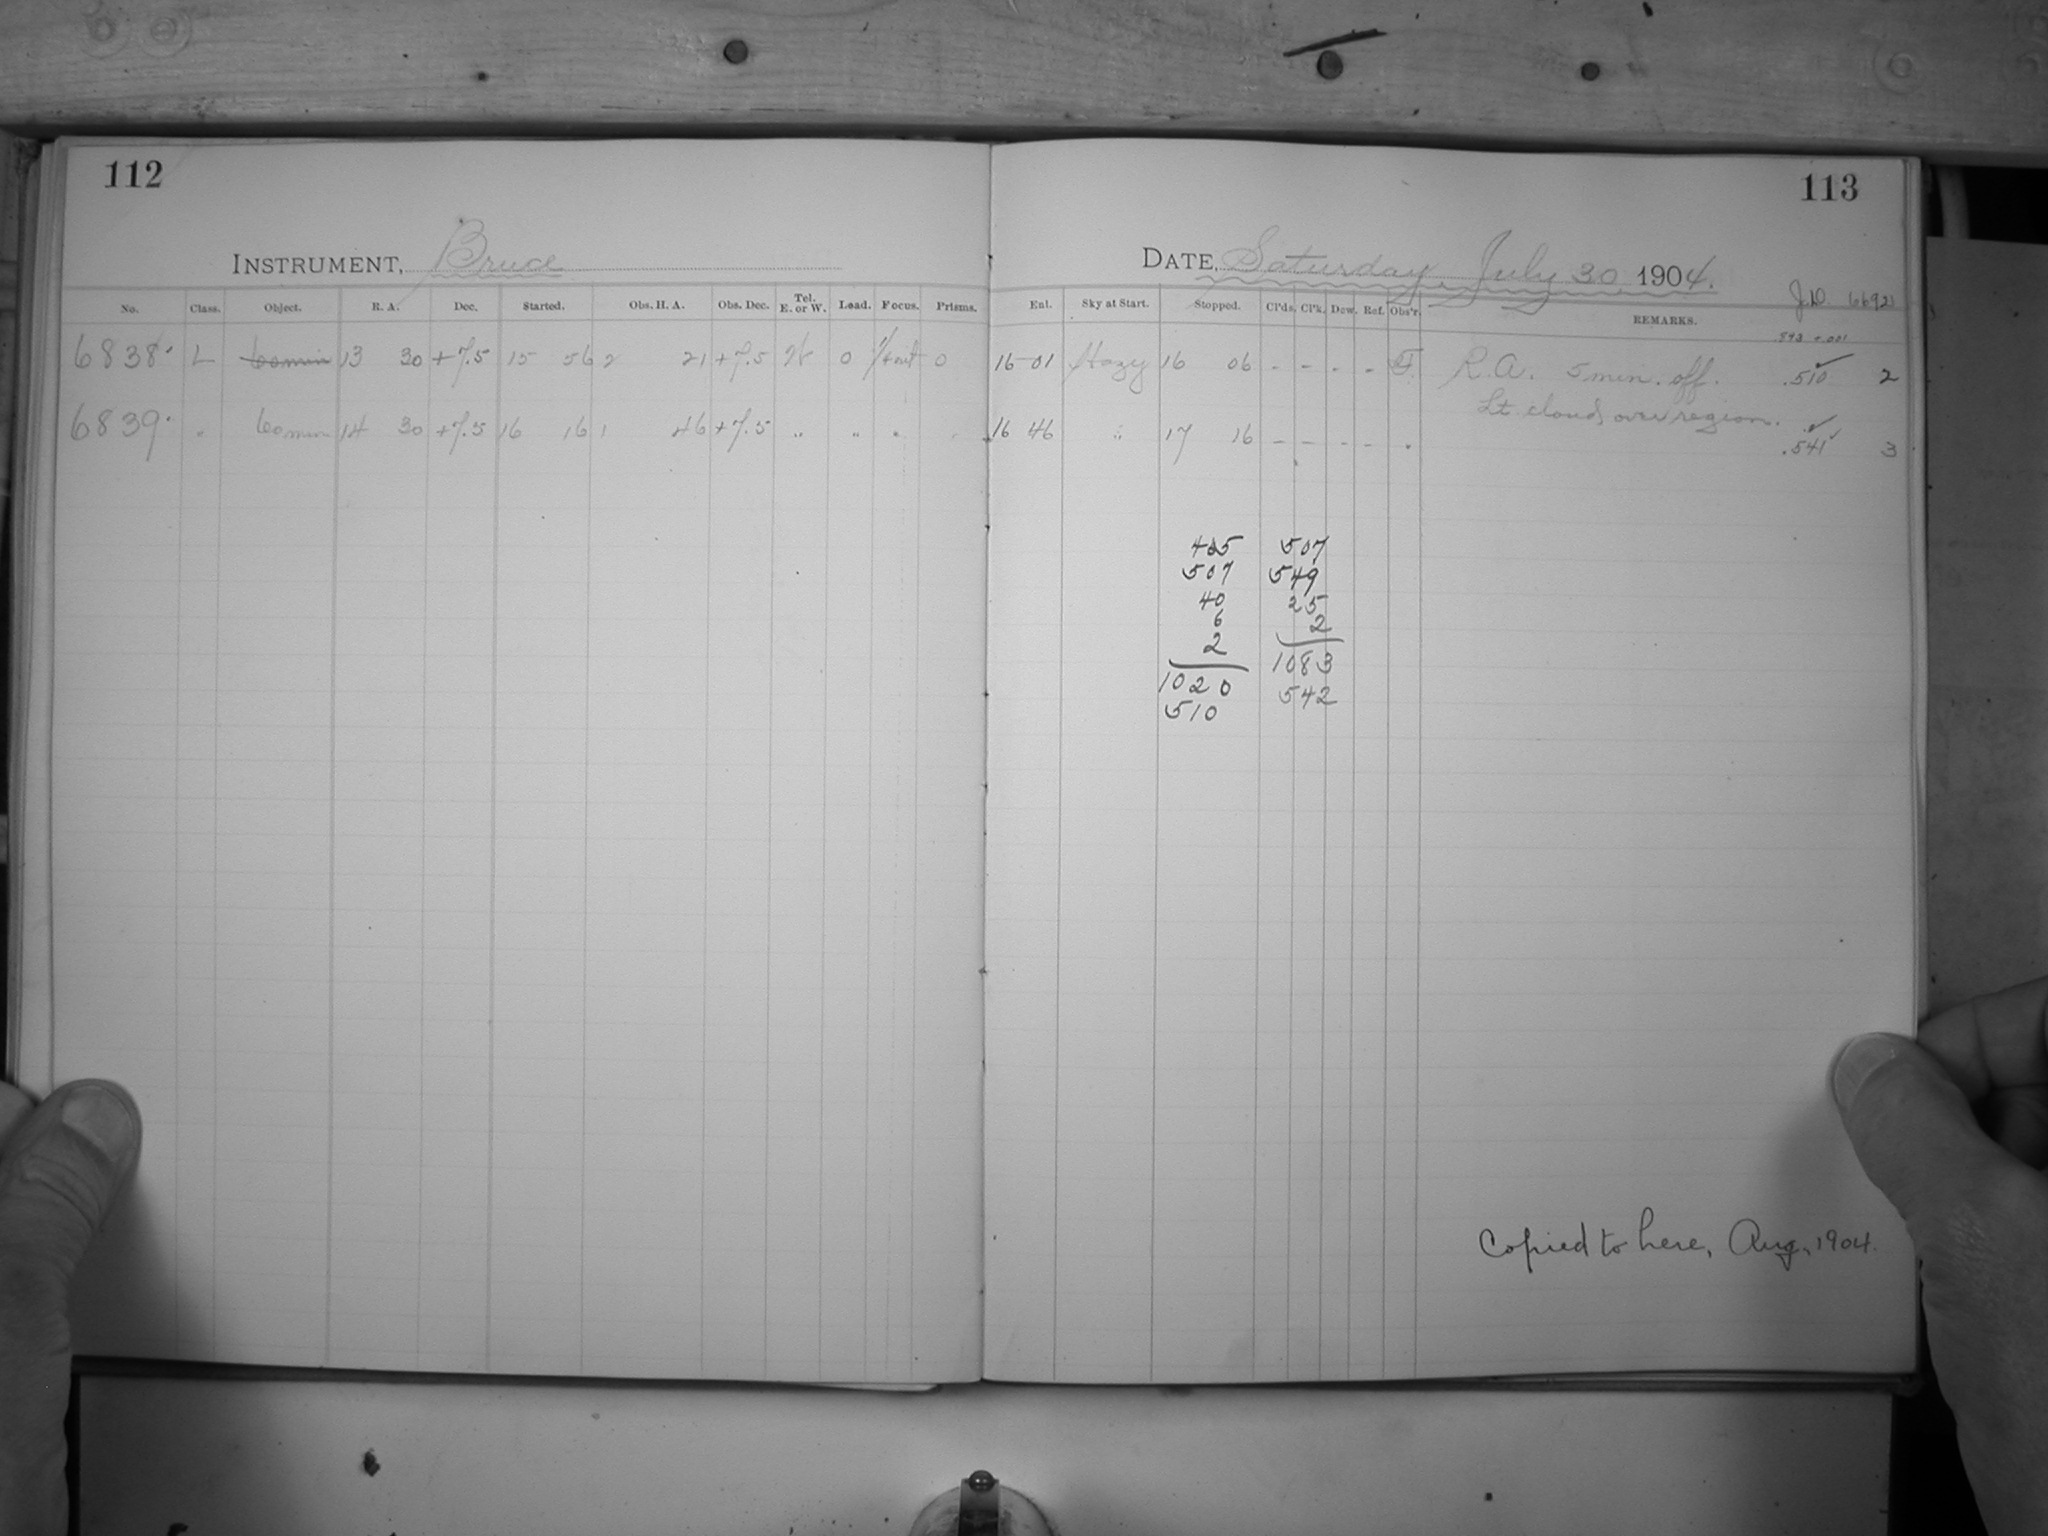 112
113
INSTRUMENT, Bruce
DATE, Saturday July 30 1904.
J.D. 6692
No. Class. Object. R. A. Dec. Started. Obs. H. A. Obs. Dec. Tel. E. or W. Lead. Focus. Prisms. Enl. Sky at Start. Stopped. Cl'ds. Cl'k. Dew. Ref. Obs'r. REMARKS.
6838 L 60 min 13 30 +7.5 15 56 2 21 +7.5 W 0 0 16 01 Hazy 16 06 - - - - R.A. 5 min. off. .510 2
Lt. clouds over region.
6839 " 60 min 14 30 +7.5 16 16 1 46 +7.5 " " " " 16 46 " 17 16 - - - - " .541 3
405 507
507 549
40 25
6 2
2 1083
1020 542
510
Copied to here, Aug. 1904.